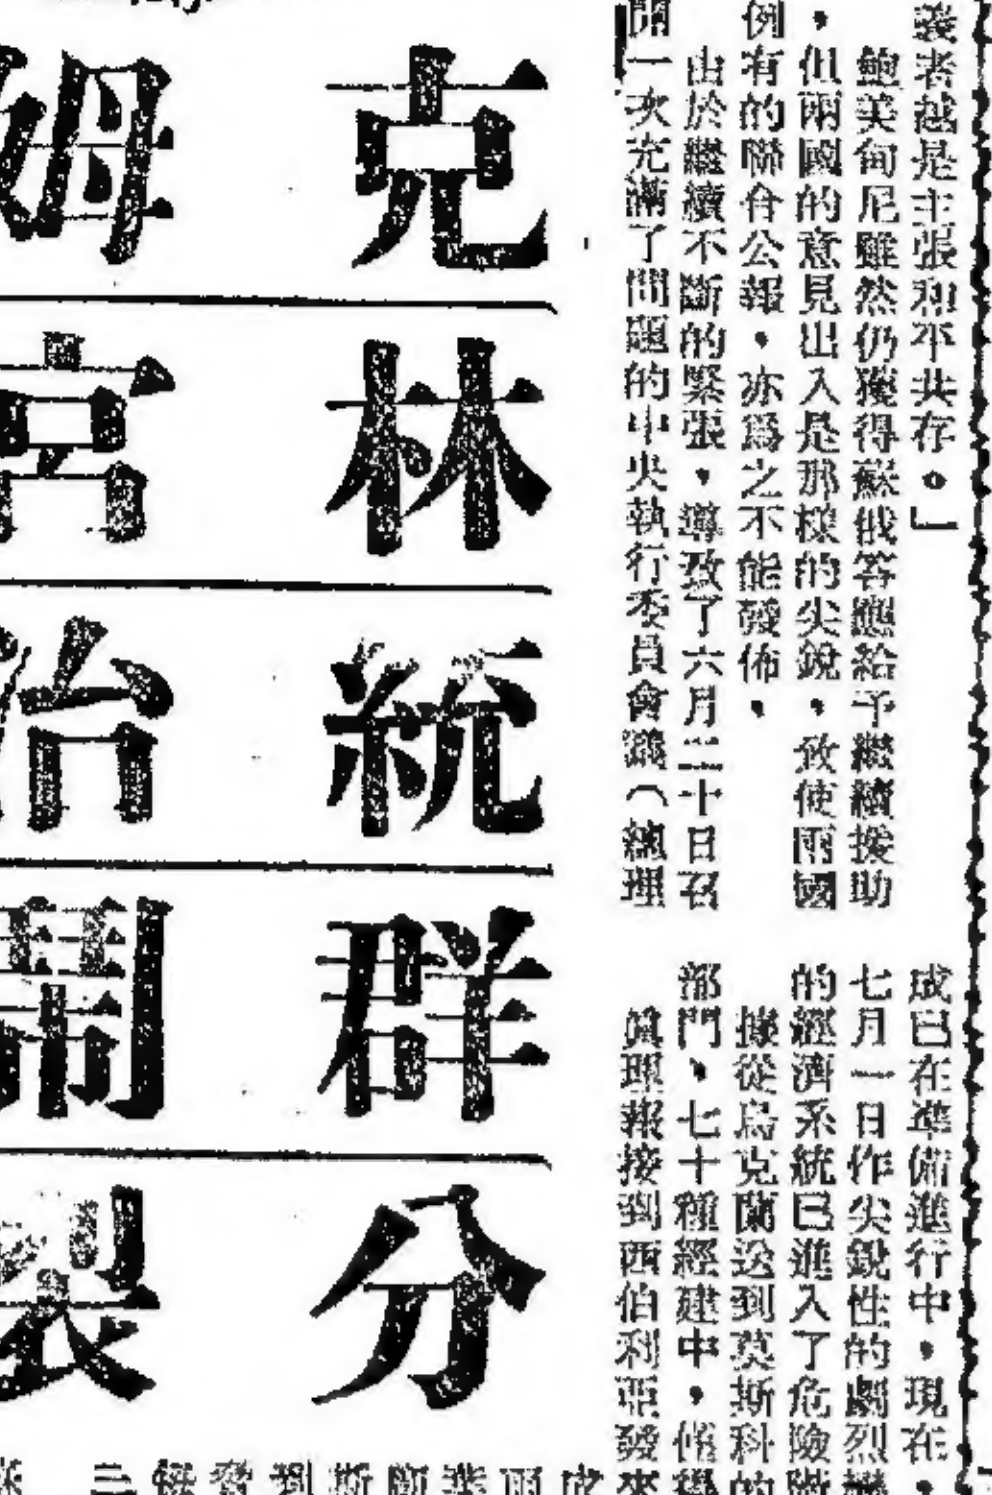 義者越是主張和平共存。」
鮑美甸尼雖然仍獲得蘇俄答應給予繼續援助
，但兩國的意見出入是那樣的尖銳，致使兩國
例有的聯合公報，亦爲之不能發佈，
由於繼續不斷的緊張，導致了六月二十日召
開一次充滿了問題的中央執行委員會議（總理
成已在準備進行中，現在，
七月一日作尖銳性的劇烈
的經濟系統已進入了危險
據從烏克蘭送到莫斯科的
部門、七十種經建中，
眞理報接到西伯利亞發來
克姆
林宮
統治
群鬧
分裂